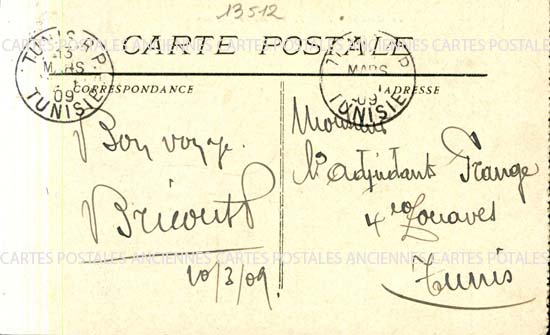 13512
CARTE POSTALE
TUNIS R.P.
13
MARS
09
TUNISIE
TUNIS R.P.
MARS
09
TUNISIE
CORRESPONDANCE
ADRESSE
Bon voyage
Bricout
10/3/09
Monsieur
l'adjudant Grange
4e Zouaves
Tunis
CARTES POSTALES ANCIENNES CARTES POSTALES ANCIENNES CARTES POSTALES
CARTES POSTALES ANCIENNES CARTES POSTALES ANCIENNES CARTES POTALES